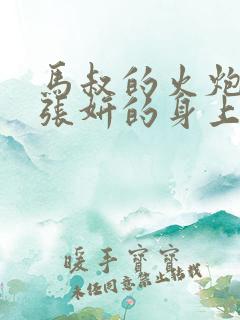 馬叔的火炮
張妍的身上
暖手寶寶
未經同意禁止轉載